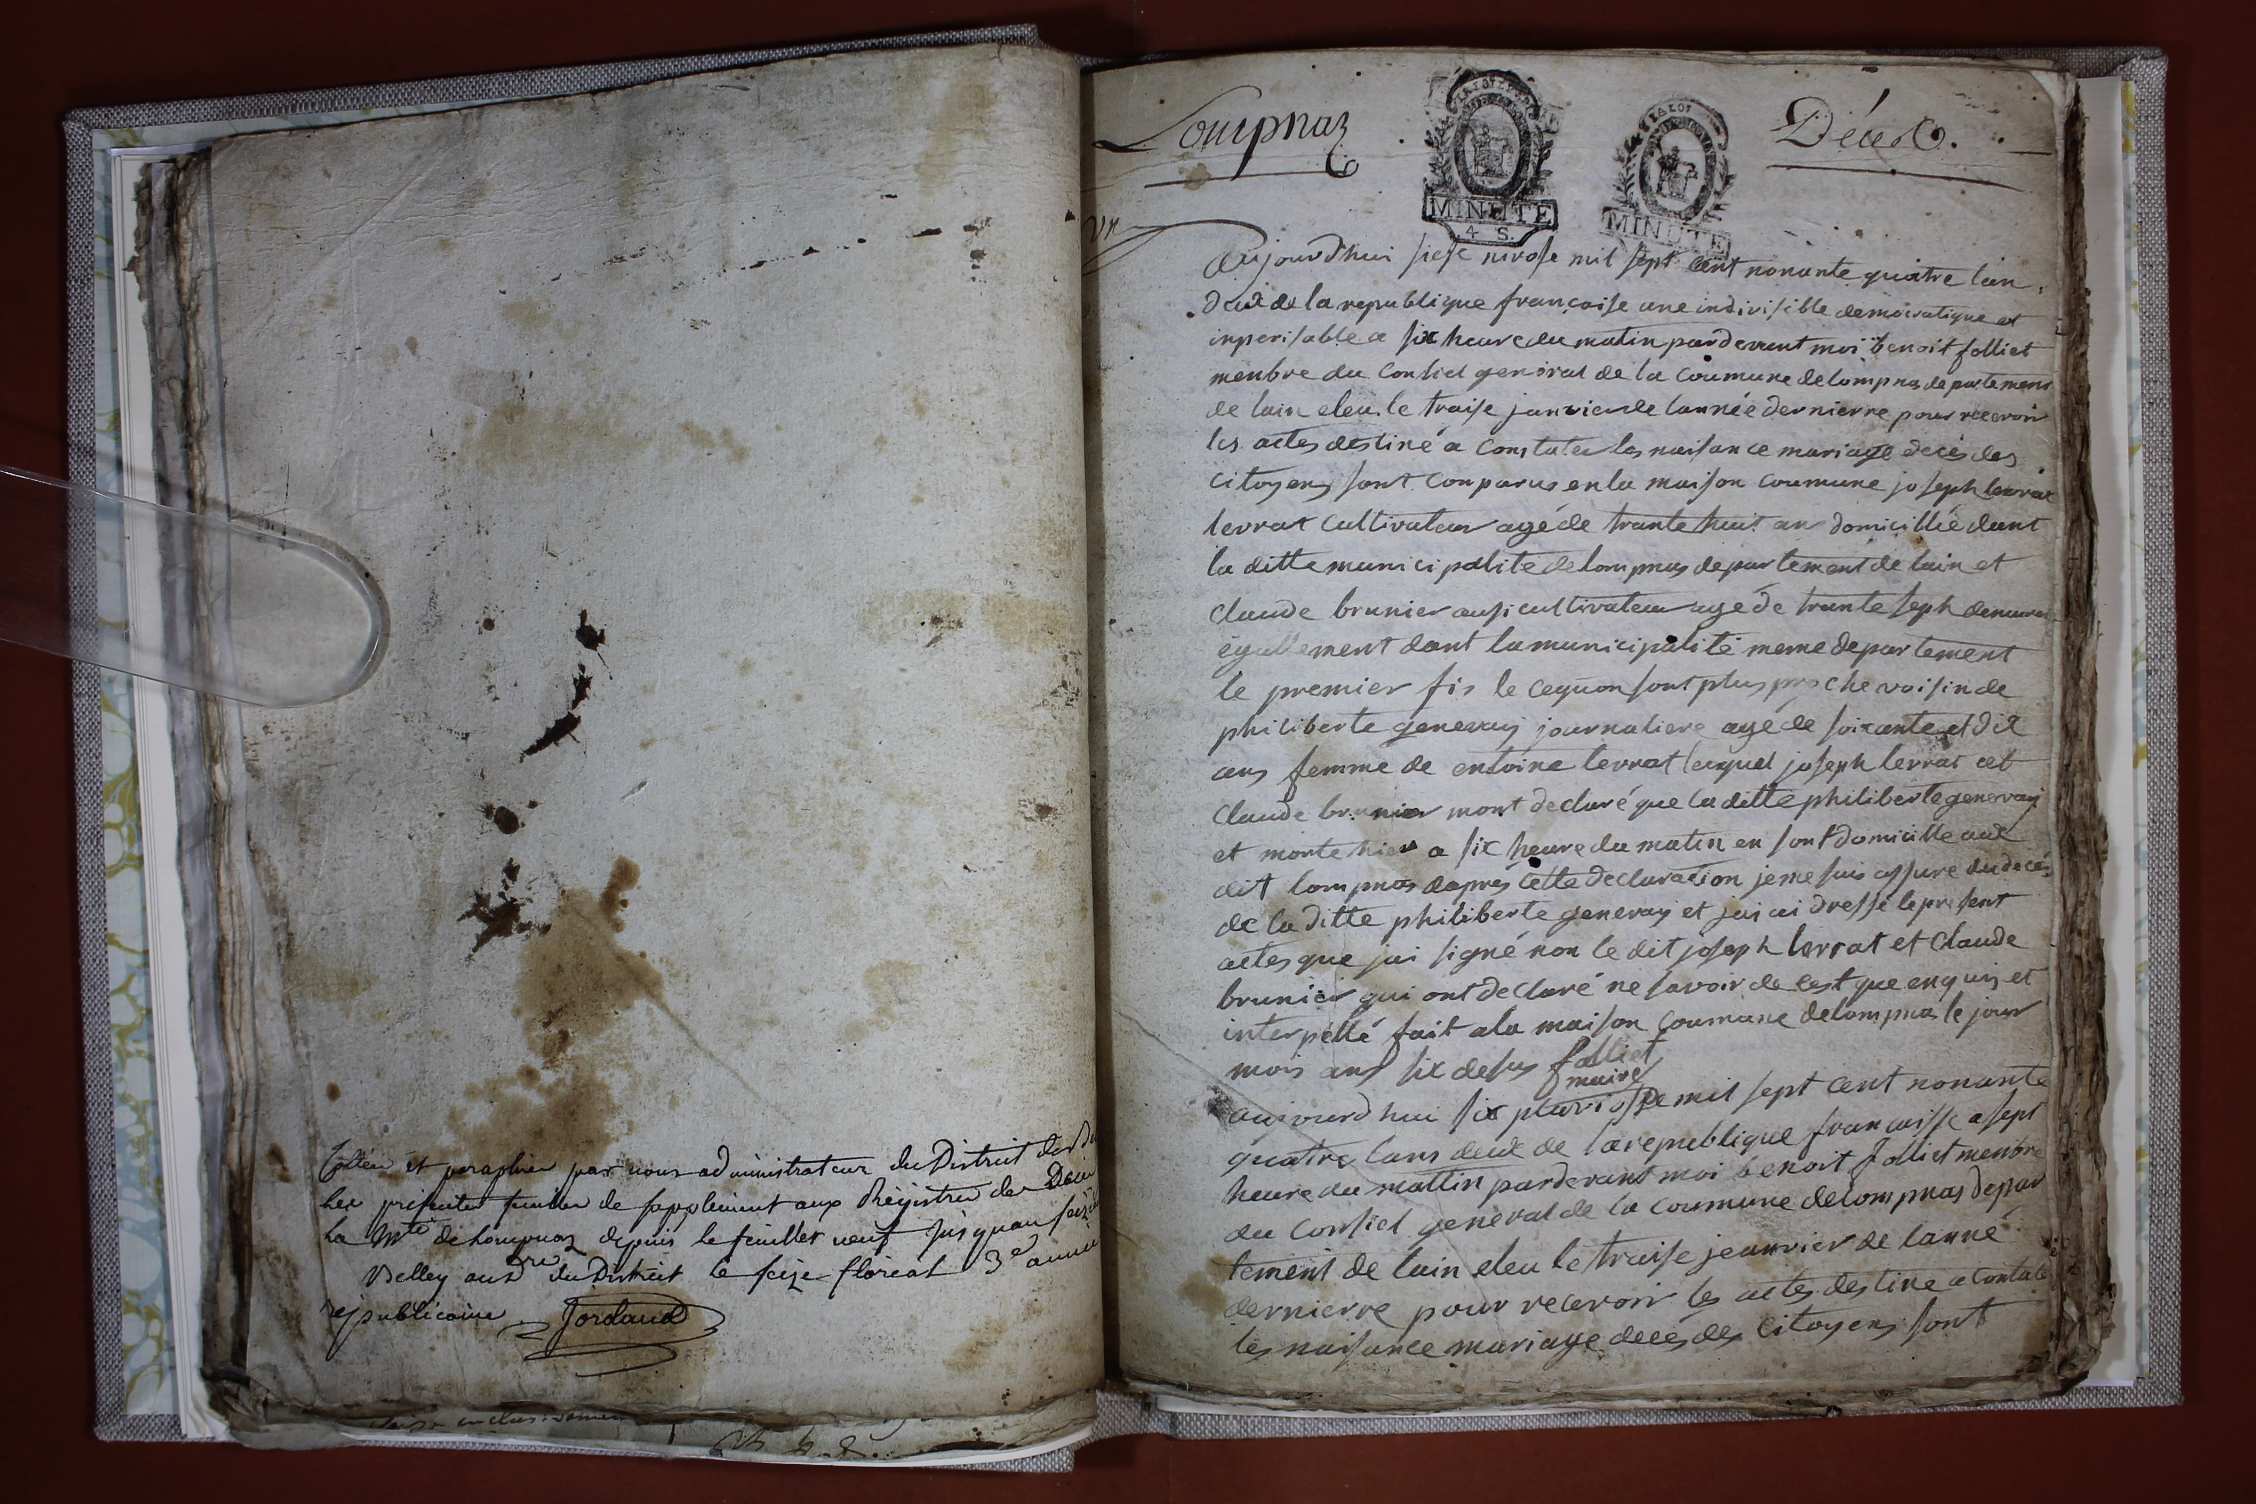 Cottée et paraphée par nous administrateur du District de
les présentes feuilles de supplément aux Régistres de Décès
la Mté de Lompnaz depuis le feuillet neuf jusqu'au seize
Belley au dre du District le seize floréal 3e année
républicaine Jordand
Lompnaz
MINUTE
4 S.
MINUTE
Décès
un
Aujourdhui siese nivose mil sept cent nonante quatre lan
deux de la republique francoise une indivisible democratique et
inperisable a six heure du matin pardevant moi benoit folliet
menbre du Consiel general de la Coumune de lompnas departement
de lain eleu le traise janvier de lannée dernierre pour recevoir
les actes destiné a Constater les naisance mariage decès des
citoyens sont Conparus en la maison coumune joseph levrat
levrat Cultivateur agé de trante huit ans domicillié dant
la ditte municipalite de lompnas departement de lain et
Claude brunier ausi cultivateur agé de trante seph demeurant
égallement dant la municipalité meme departement
le premier fis le cequon sont plus proche voisin de
philiberte genevay journaliere agé de soixante et dix
ans femme de entoine levrat lequel joseph levrat et
Claude brunier mont declaré que la ditte philiberte genevay
et morte hier a six heure du matin en sont domicille aud
dit lompnas dapres cette declaration je me suis assure du decès
de la ditte philiberte genevay et jai ai dressé le present
actes que jai signé non le dit joseph levrat et Claude
brunier qui ont declaré ne savoir de cest que enquis et
interpellé fait a la maison Coumune de lompnas le jour
mois ans six desus folliet
maire
aujourdhui six pluviose mil sept cent nonante
quatre lans deux de la republique francaisse a sept
heure du mattin pardevant moi benoit folliet menbre
du Consiel general de la Coumune de lompnas depar
tement de lain eleu le traise jeanvier de lanné
dernierre pour recevoir les actes destine a Constate
les naisance mariage decès des Citoyens sont